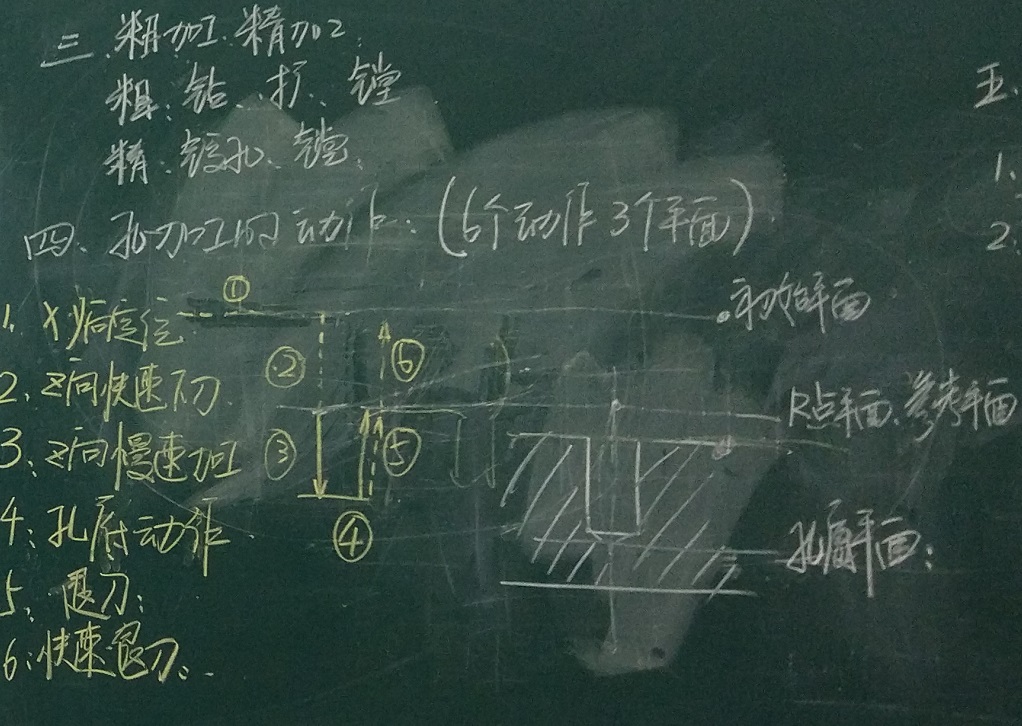 三、粗加工、精加工
粗：钻、扩、镗
精：铰孔、镗、
四、孔加工的动作：(6个动作 3个平面)
1、XY向定位
2、Z向快速下刀
3、Z向慢速加工
4：孔底动作
5：退刀：
6：快速退刀：
①
②
③
④
⑤
⑥
初始平面
R点平面、参考平面
孔底平面：
五、
1、
2：